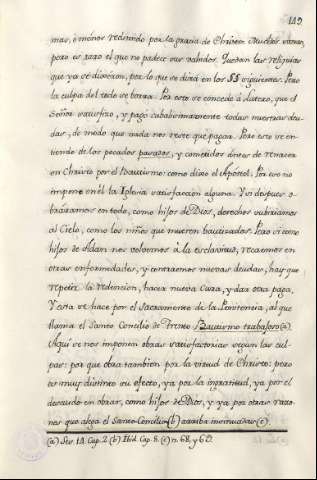 149
mas, ò menos redimido por la gracia de Christo. Muchos sanan,
pero es raro el que no padece sus salidos. Quedan las reliquias
que ya se dixeron, por lo que se dirà en los §§ siguientes. Pero
la culpa del todo se borra. Por esto se concede à Lutero, que el
Señor satisfizo, y pagò sobradamente todas nuestras deu-
das, de modo que nada nos reste que pagar. Pero esto se en-
tiende de los pecados pasados, y cometidos antes de renacer
en Christo por el Bautismo: como dixo el Apostol. Por eso no
impone en èl la Iglesia satisfaccion alguna. Y si despues o-
braramos en todo, como hijos de Dios, derechos subiriamos
al Cielo, como los niños que mueren bautizados. Pero si como
hijos de Adan nos volvemos à la esclavitud, recaemos en
otras enfermedades, y contraemos nuevas deudas, hay que
repetir la redencion, hacer nueva cura, y dar otra paga.
Y esta se hace por el Sacramento de la Penitencia, al que
llama el Santo Concilio de Trento Bautismo trabajoso (a).
Aqui se nos imponen obras satisfactorias segun las cul-
pas: por que obra tambien por la virtud de Christo: pero
es muy distinto su efecto, ya por la ingratitud, ya por el
descuido en obrar, como hijos de Dios, y ya por otras razo-
nes que alega el Santo Concilio (b) arriba insinuadas (c).
(a) Ses. 14. Cap. 2. (b) Ibid. Cap. 8. (c) n. 68. y 60.